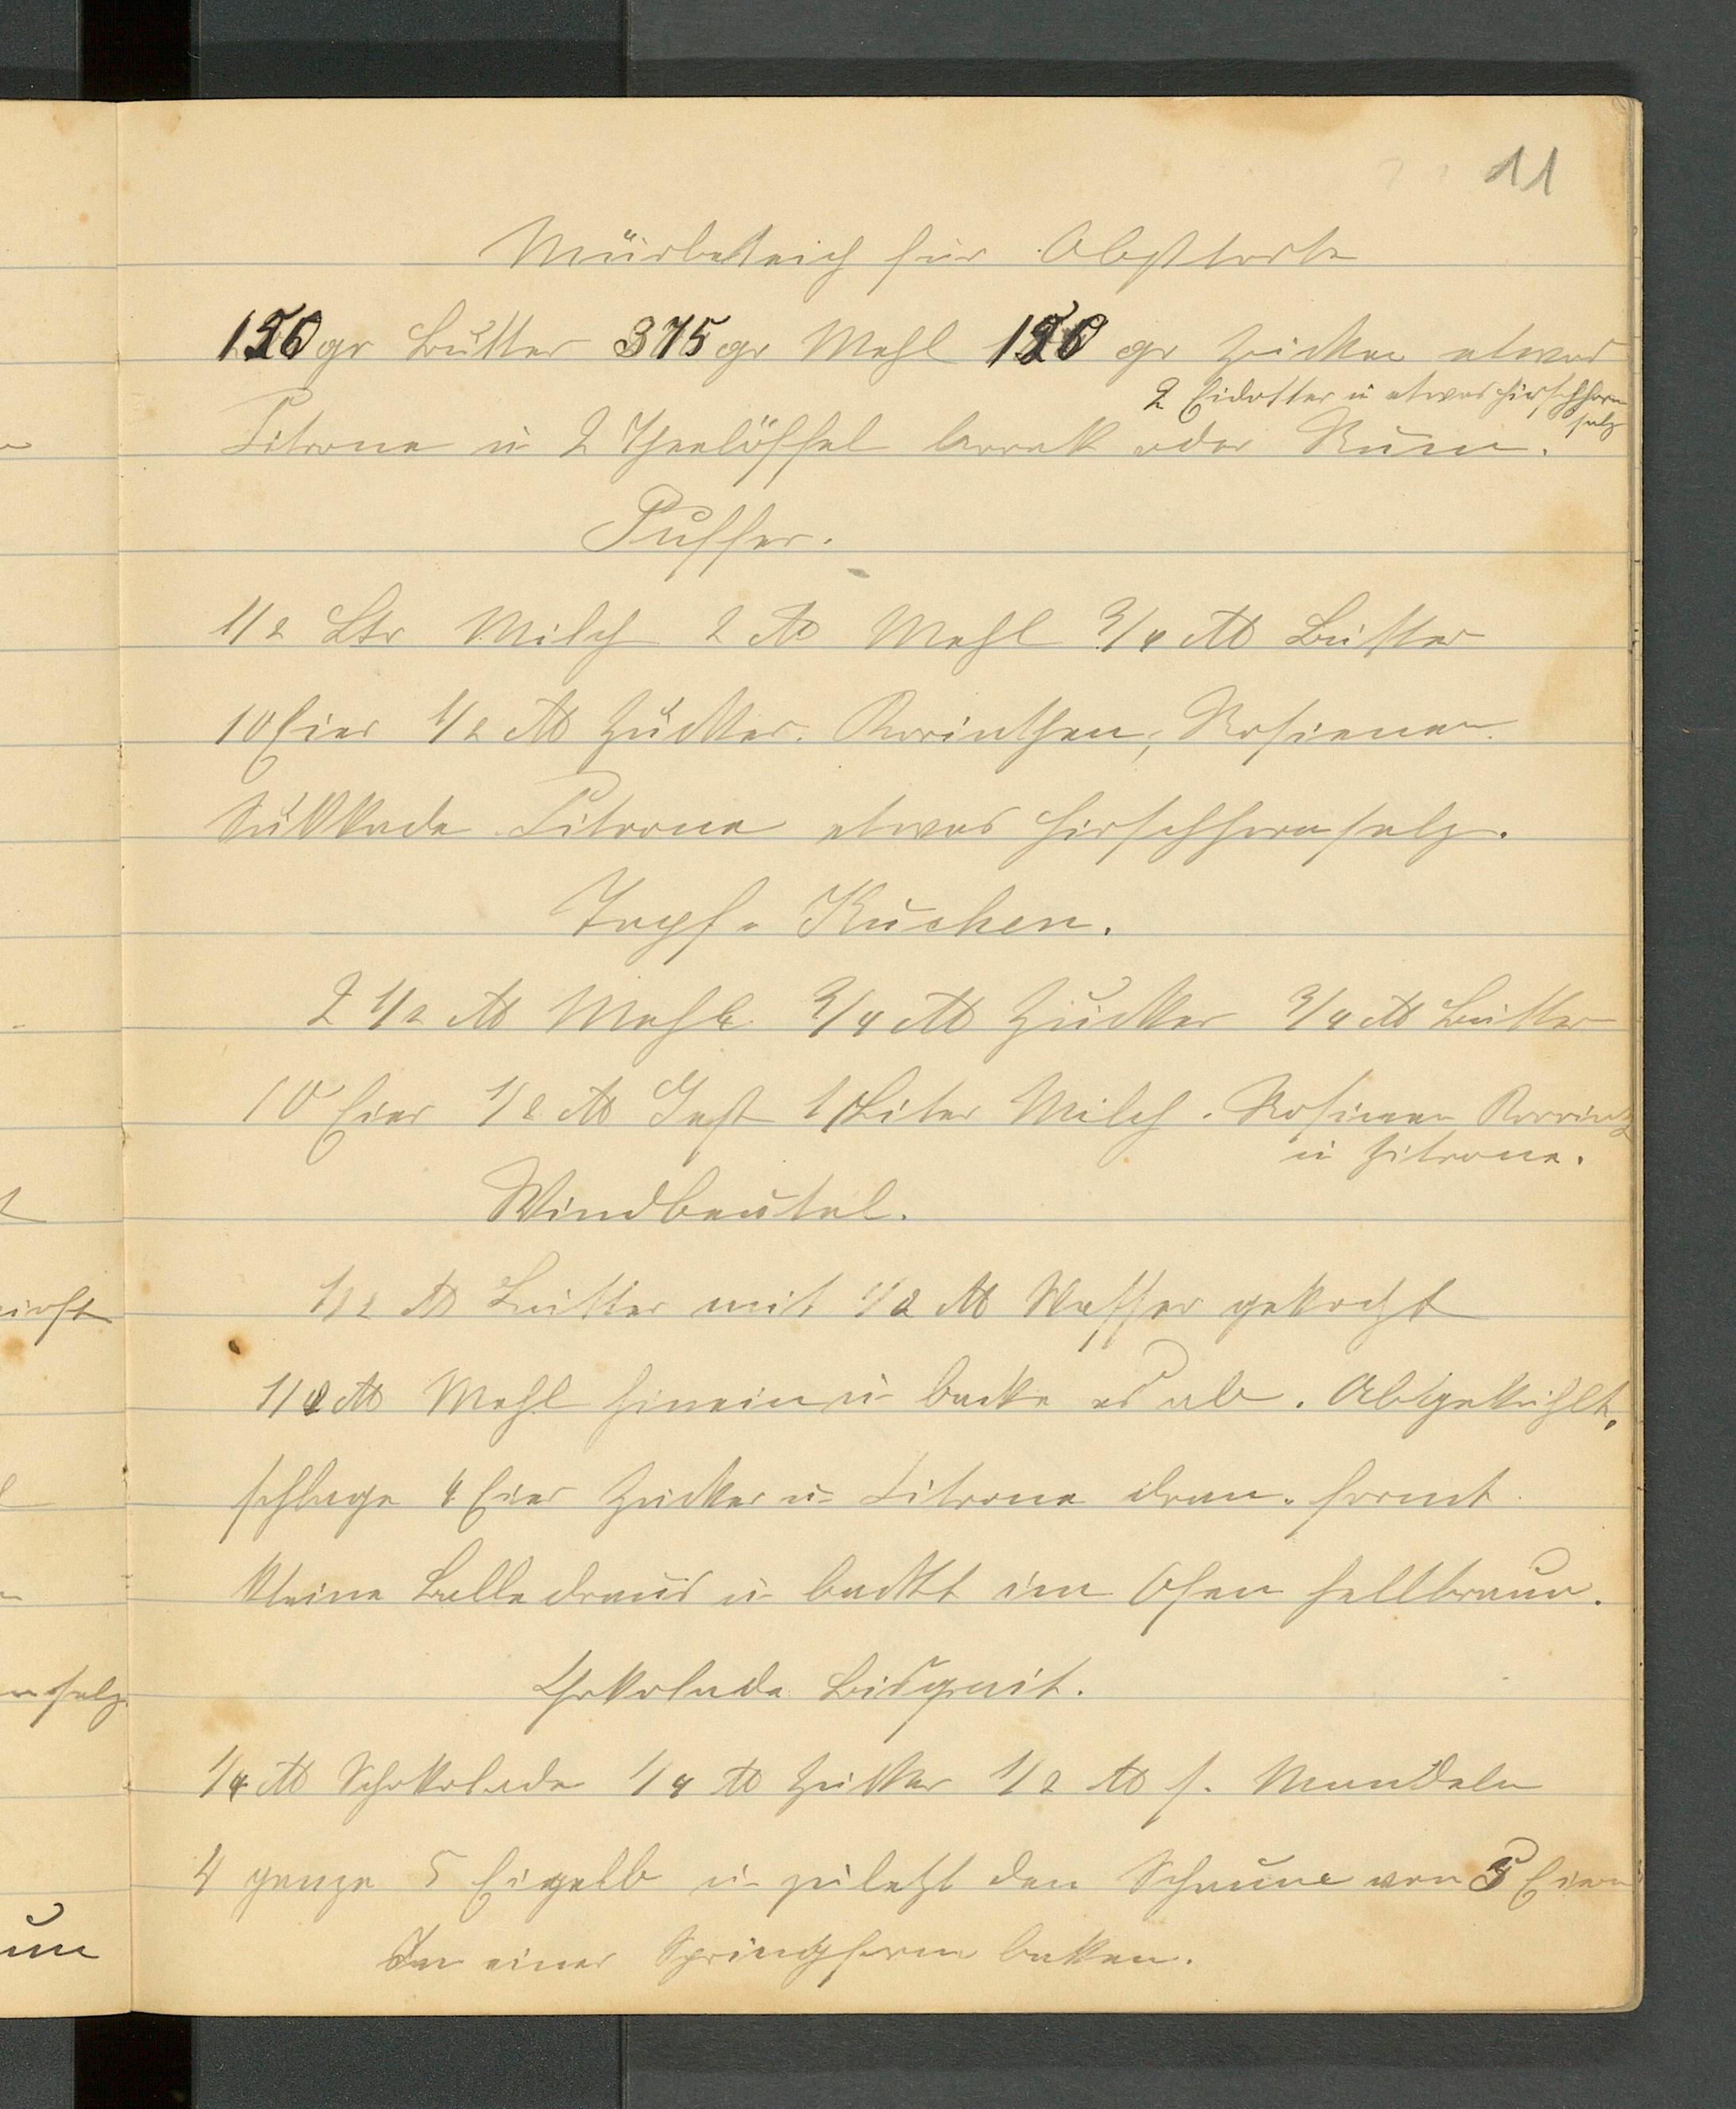 11
Mürbeteich für Obsttorte
150 gr Butter 375 gr Mehl 150 gr Zucker etwas
2 Eidotter u etwas Hirschhorn
salz
Citrone u 2 Theelöffel Arrak oder Rum.
Puffer.
1/2 Ltr Milch 2 ℔ Mehl 3/4 ℔ Butter
10 Eier 1/2 ℔ Zucker. Korinthen, Rosienen.
Sukkade Citrone etwas Hirschhornsalz.
Topf-Kuchen.
2 1/2 ℔ Mehl 3/4 ℔ Zucker 3/4 ℔ Butter
10 Eier 1/8 ℔ Gest 1 Liter Milch. Rosinen Korinth
u Zitrone.
Windbeutel.
1/2 ℔ Butter mit 1/2 ℔ Wasser gekocht
1/2 ℔ Mehl hinein u backe es ab. Abgekühlt,
schlage 4 Eier Zucker u Citrone dran. formt
kleine Bälle draus u backt im Ofen hellbraun.
Chokolade Bisquit.
1/4 ℔ Schokolade 1/4 ℔ Zucker 1/2 ℔ s. Mandeln
4 ganze 5 Eigelb u zuletzt den Schaum von 5 Eiern
In einer Springform backen.